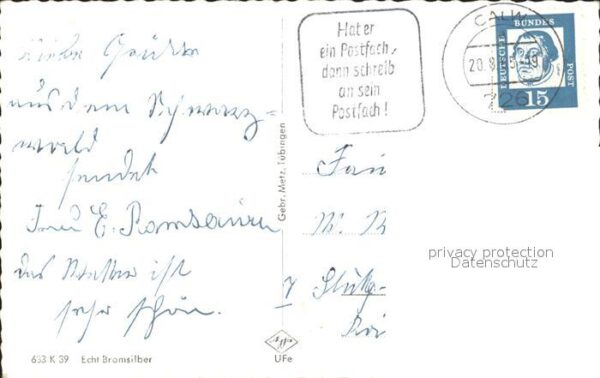 Liebe Grüße
aus dem Schwarz-
wald
sendet
Frau E. Ramsaier
das Wetter ist
sehr schön.
633 K 39 Echt Bromsilber
Gebr. Metz, Tübingen
UFe
Hat er
ein Postfach,
dann schreib
an sein
Postfach!
CALW
20.8.
726
DEUTSCHE BUNDESPOST
15
Frau
M. R
7 Stuttg-
privacy protection
Datenschutz